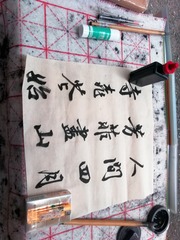 人間四月
芳菲盡山
寺桃花始